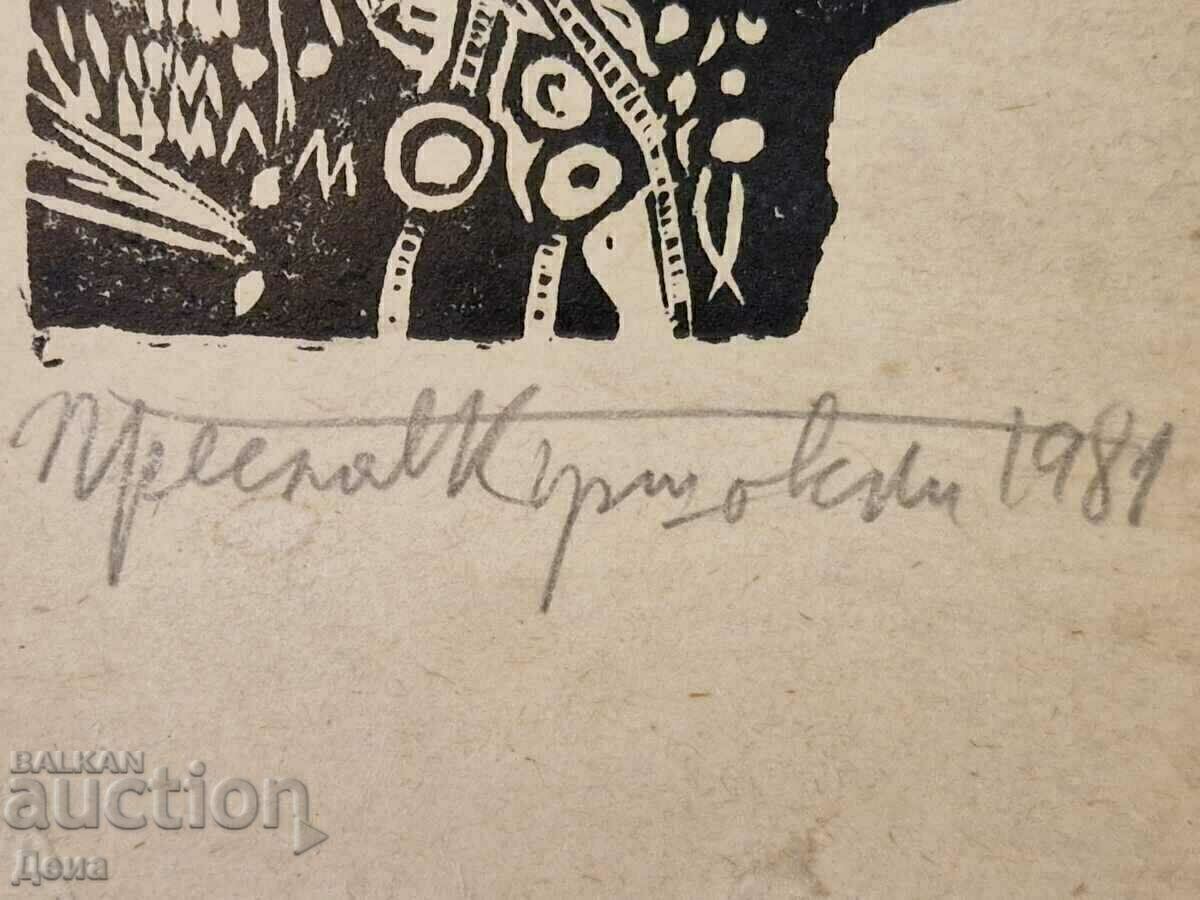 Преслав Кършовски 1981
BALKAN
auction
Деиа